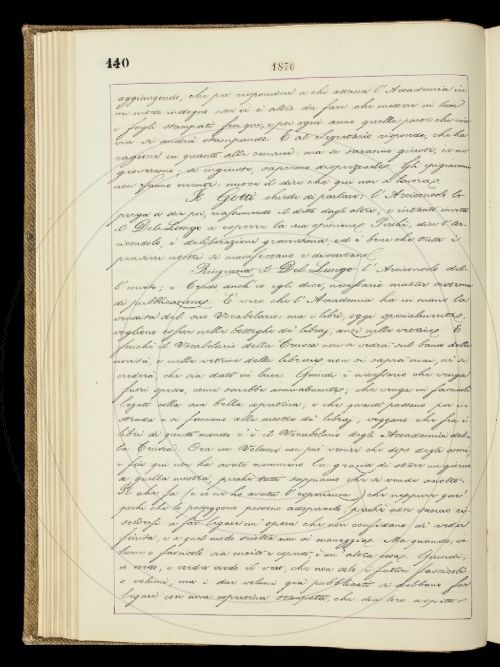 140
1876
aggiungendo, che per rispondere a chi attacca l'Accademia in
un modo indegno non vi è altro da fare che metter in luce
i fogli stampati fin qui, e poi ogni anno quella parte che via
via si andrà stampando. E al Segretario risponde, che ha
ragione in quanto alla censura, ma se saranno giuste, ce ne
gioveremo; se ingiuste, sapremo disprezzarle. Gli epigrammi
non fanno niente: nuoce il dire che qui non si lavora.
Il Gotti chiede di parlare: l'Arciconsolo lo
prega a dir poi, riassumendo il detto dagli altri; e intanto invita
il Del Lungo a esporre la sua opinione. Perchè, dice l'Ar-
ciconsolo, è deliberazione gravissima, ed è bene che tutti i
pensieri nostri si manifestano e discutano.
Ringrazia il Del Lungo l'Arciconsolo del-
l'invito; e Crede anch'io egli dice, necessario mutar sistema
di pubblicazione. È vero che l'Accademia ha in mano la
vendita del suo Vocabolario; ma i libri, oggi specialmente,
vogliono esser nelle botteghe de' libraj, anzi nelle vetrine. E
finchè il Vocabolario della Crusca non si vedrà sul banco della
mensa, e nelle vetrine delle librerie non si saprà mai, nè si
crederà che sia dato in luce. Quindi è necessario che venga
fuori spesso, come sarebbe annualmente; che venga in fascicoli
legati colla sua bella copertina; e che quanti passano per i-
strada e si fermano alle mostre de' libraj, veggano che fra i
libri di questo mondo c'è il Vocabolario degli Accademici del-
la Crusca. Ora un Volume non può venir che dopo degli anni,
e fin qui non ha avuto nemmeno la grazia di stare in giorno
a quella mostra, perchè tutti sappiamo che si vende sciolto.
Il che fa (e io ne ho avuta l'esperienza) che neppure que'
pochi che lo posseggono possono adoperarlo, perchè non fanno ri-
soluzione a far legare un'opera che non confidano di veder
finita, e a quel modo sciolta non si maneggia. Ma quando, vo-
lume o fascicolo sia cucito e coperto, è un'altra cosa. Quindi,
io credo, e credo credo il vero, che non solo i futuri fascicoli
o volumi, ma i due volumi già pubblicati si debbano far
legare con una copertina stampata, che dia loro aspetto